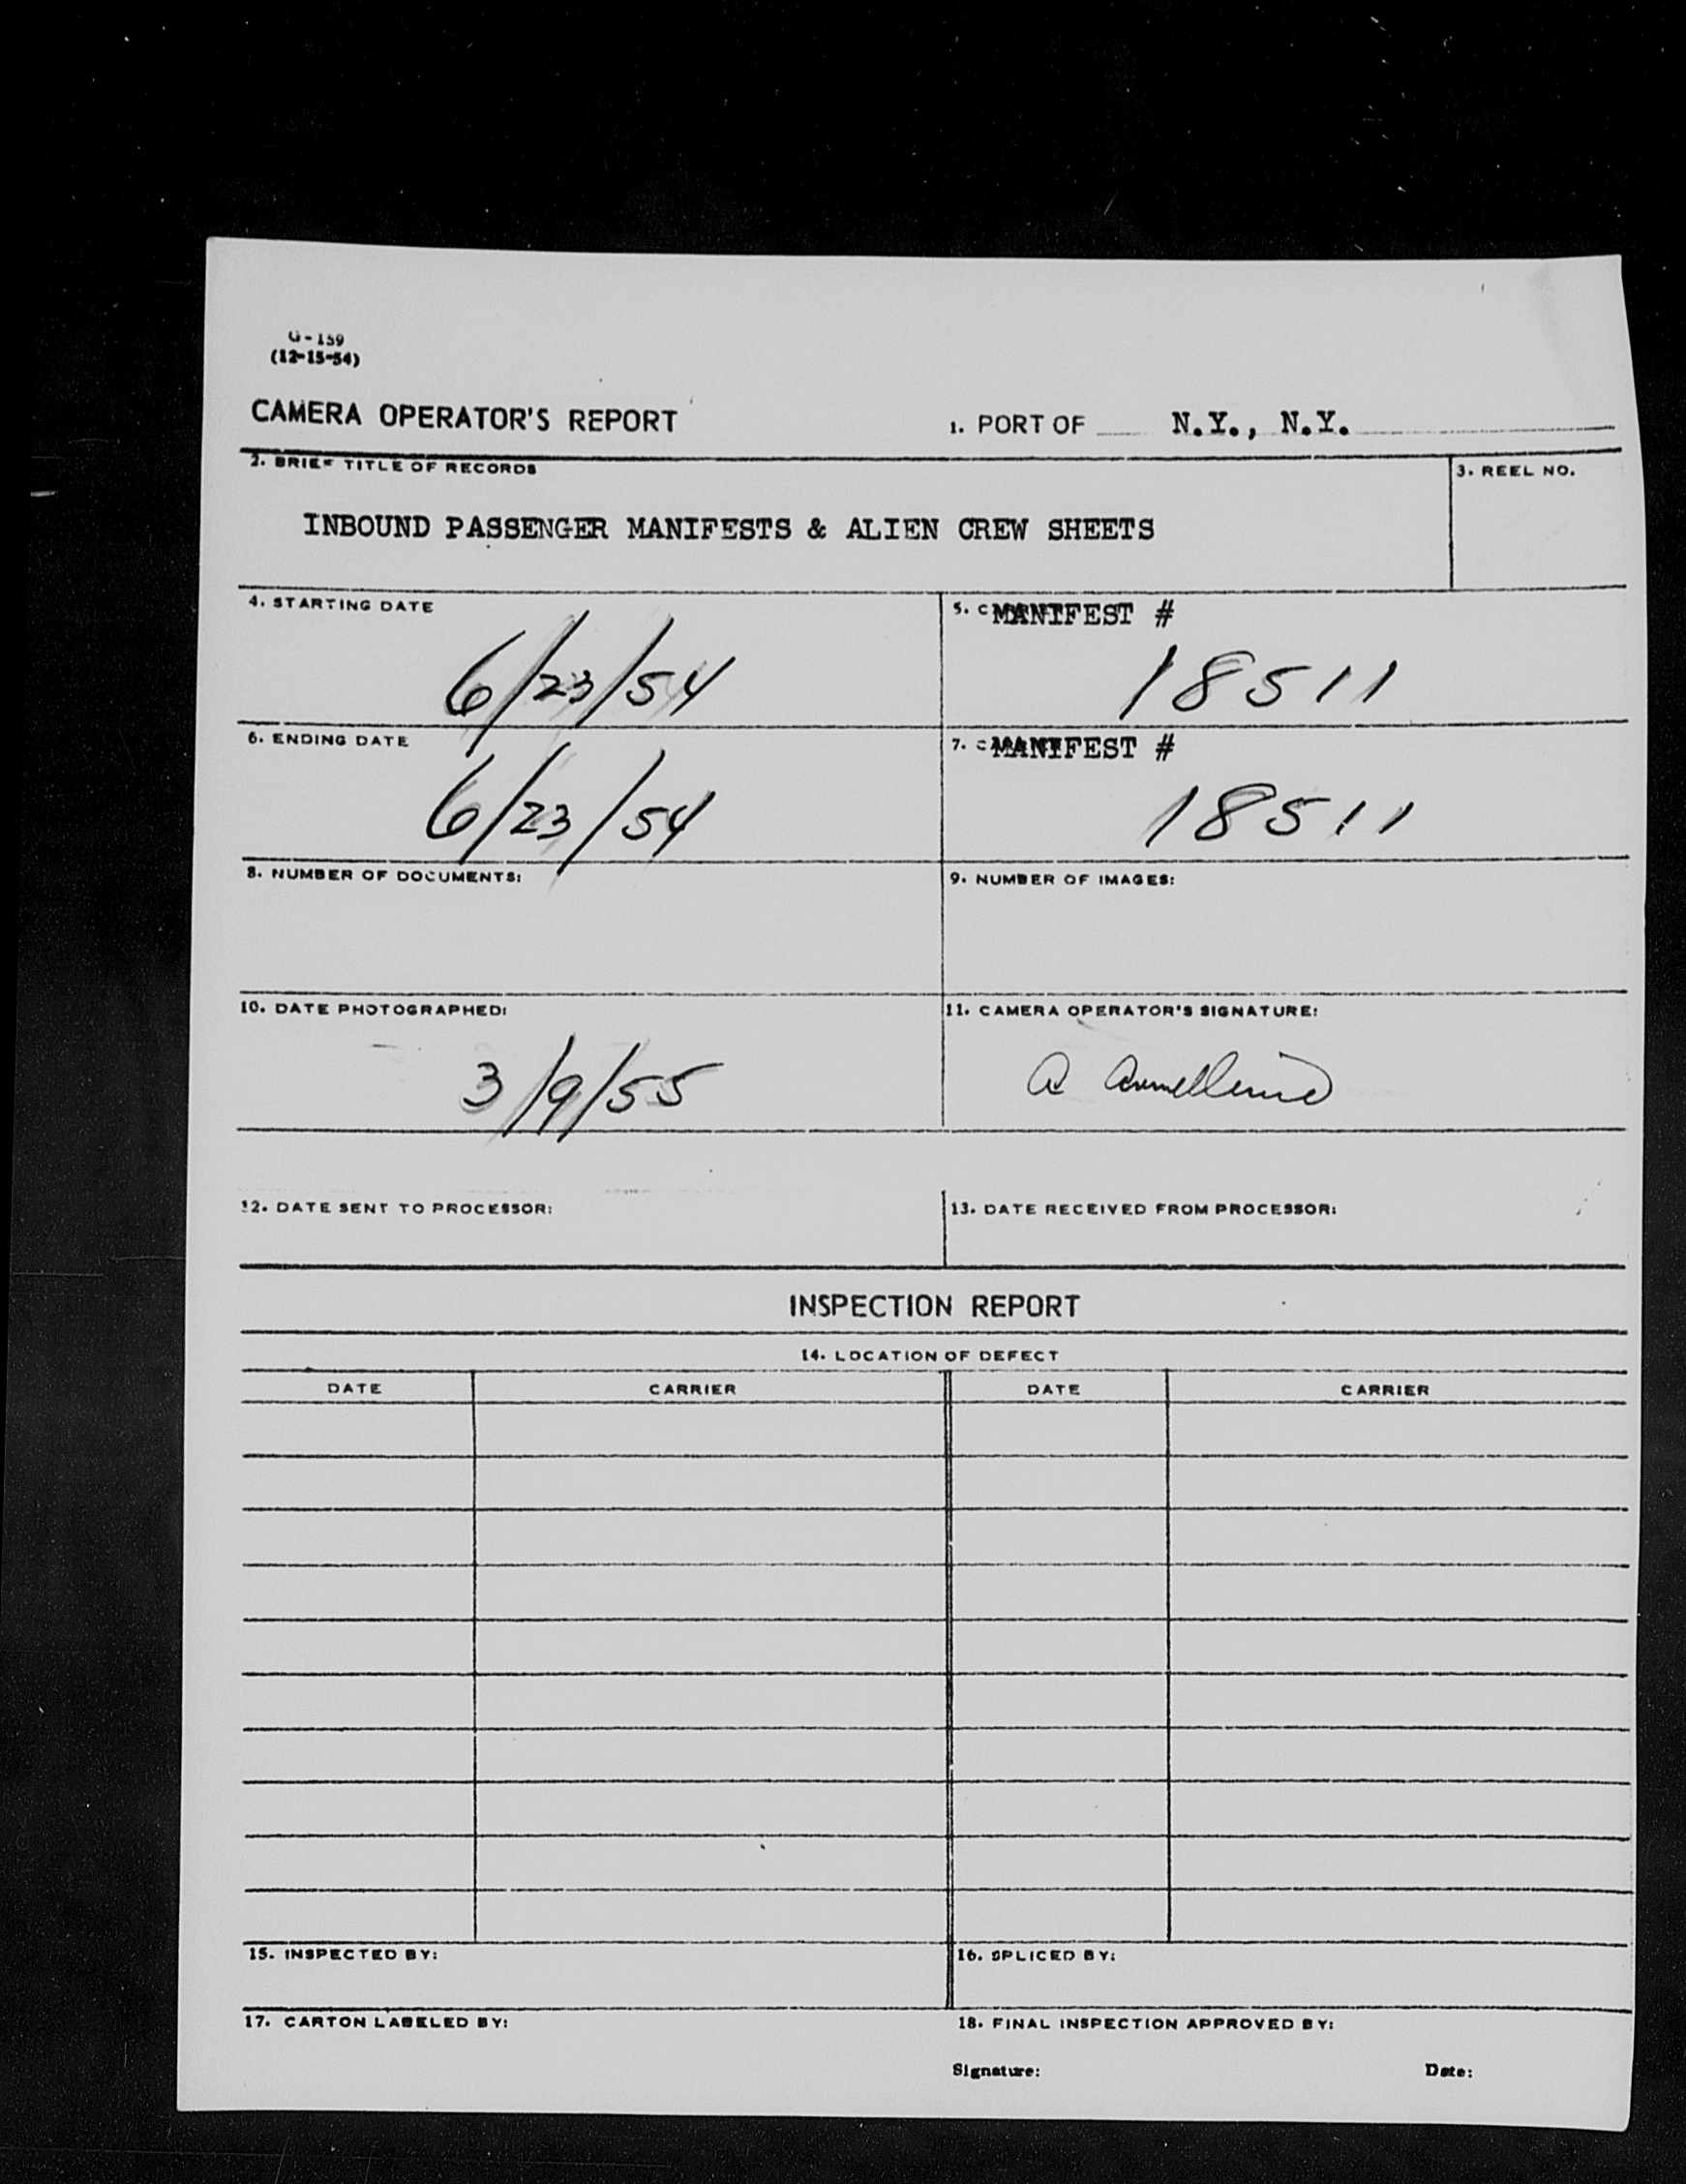 G-159
(12-15-54)
CAMERA OPERATOR'S REPORT
1. PORT OF N.Y., N.Y.
2. BRIEF TITLE OF RECORDS
3. REEL NO.
INBOUND PASSENGER MANIFESTS & ALIEN CREW SHEETS
4. STARTING DATE
5. MANIFEST #
6/23/54
18511
6. ENDING DATE
7. MANIFEST #
6/23/54
18511
8. NUMBER OF DOCUMENTS:
9. NUMBER OF IMAGES:
10. DATE PHOTOGRAPHED:
11. CAMERA OPERATOR'S SIGNATURE:
3/9/55
A
12. DATE SENT TO PROCESSOR:
13. DATE RECEIVED FROM PROCESSOR:
INSPECTION REPORT
14. LOCATION OF DEFECT
DATE CARRIER DATE CARRIER
15. INSPECTED BY:
16. SPLICED BY:
17. CARTON LABELED BY:
18. FINAL INSPECTION APPROVED BY:
Signature: Date: